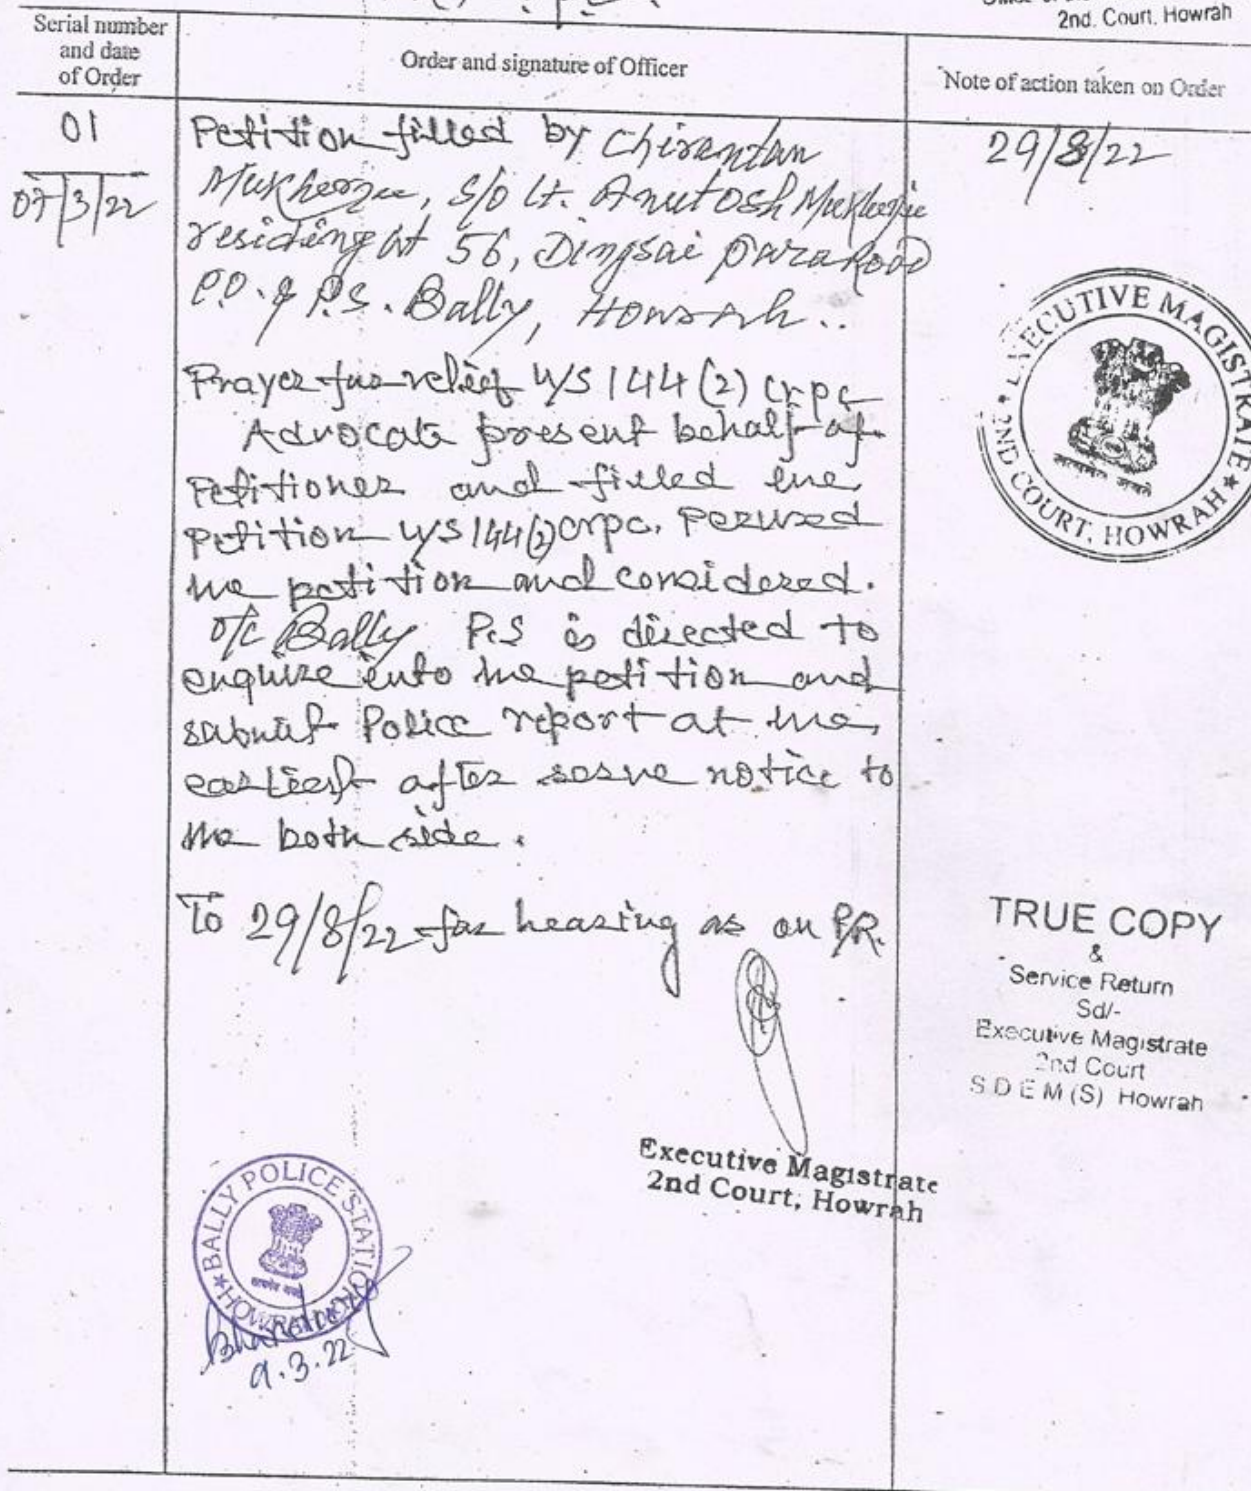 2nd. Court. Howrah
Serial number
and date
of Order
Order and signature of Officer
Note of action taken on Order
01
07/3/22
29/8/22
Petition filled by Chirantan
Mukherjee, S/o Lt. Anutosh Mukherjee
residing at 56, Dingsai Para Road
P.O. & P.S. Bally, Howrah..
Prayer for relief u/s 144 (2) crpc
Advocate present behalf of
Petitioner and filled the
petition u/s 144(2) crpc. Perused
the petition and considered.
O/C Bally P.S is directed to
enquire into the petition and
submit Police report at the
earliest after serve notice to
the both side.
To 29/8/22 for hearing as on P/R.
EXECUTIVE MAGISTRATE
2ND COURT, HOWRAH
सत्यमेव जयते
TRUE COPY
&
Service Return
Sd/-
Executive Magistrate
2nd Court
S D E M (S) Howrah
Executive Magistrate
2nd Court, Howrah
BALLY POLICE STATION
HOWRAH
9.3.22